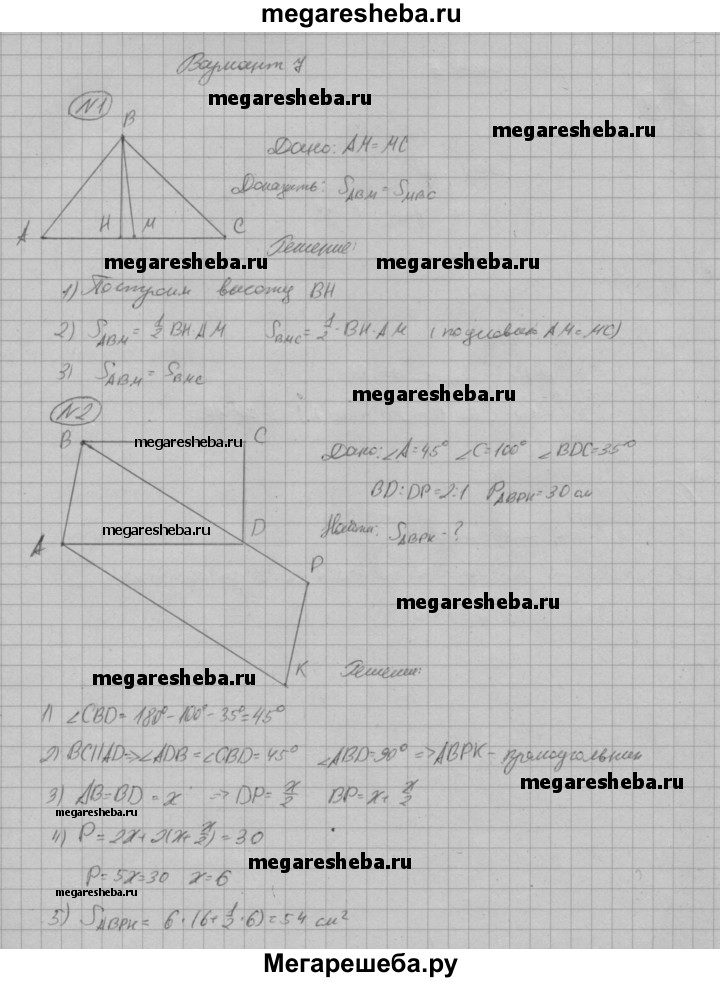 megaresheba.ru
Вариант 7
№1
megaresheba.ru
megaresheba.ru
B
Дано: AM=MC
Доказать: S_ABM = S_MBC
A H M C
Решение:
megaresheba.ru megaresheba.ru
1) Построим высоту BH
2) S_ABM = 1/2 BH·AM S_BMC = 1/2·BH·AM (по условию AM=MC)
3) S_ABM = S_BMC
megaresheba.ru
№2
B megaresheba.ru C
Дано: ∠A=45° ∠C=100° ∠BDC=35°
BD:DP=2:1 P_ABPK=30 см
megaresheba.ru
D
Найти: S_ABPK - ?
A
P
megaresheba.ru
K
Решение:
megaresheba.ru
1) ∠CBD = 180°-100°-35°=45°
2) BC||AD => ∠ADB = ∠CBD = 45° ∠ABD=90° => ABPK - прямоугольник
megaresheba.ru
3) AB=BD = x => DP = x/2 BP = x + x/2
megaresheba.ru
4) P = 2x + 2(x + x/2) = 30
megaresheba.ru
P = 5x = 30 x = 6
megaresheba.ru
5) S_ABPK = 6·(6+1/2·6)=54 см²
megaresheba.ru
Мегарешеба.ру